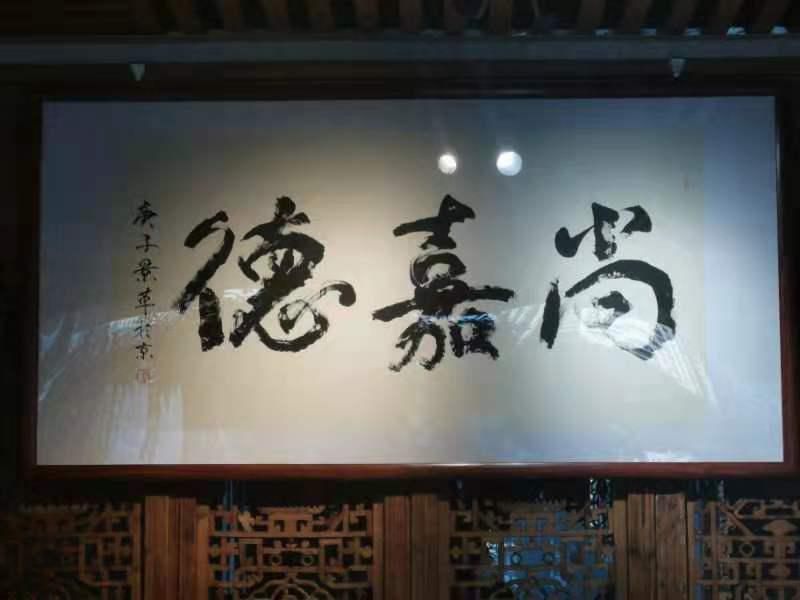 尚嘉德
庚子景革於京